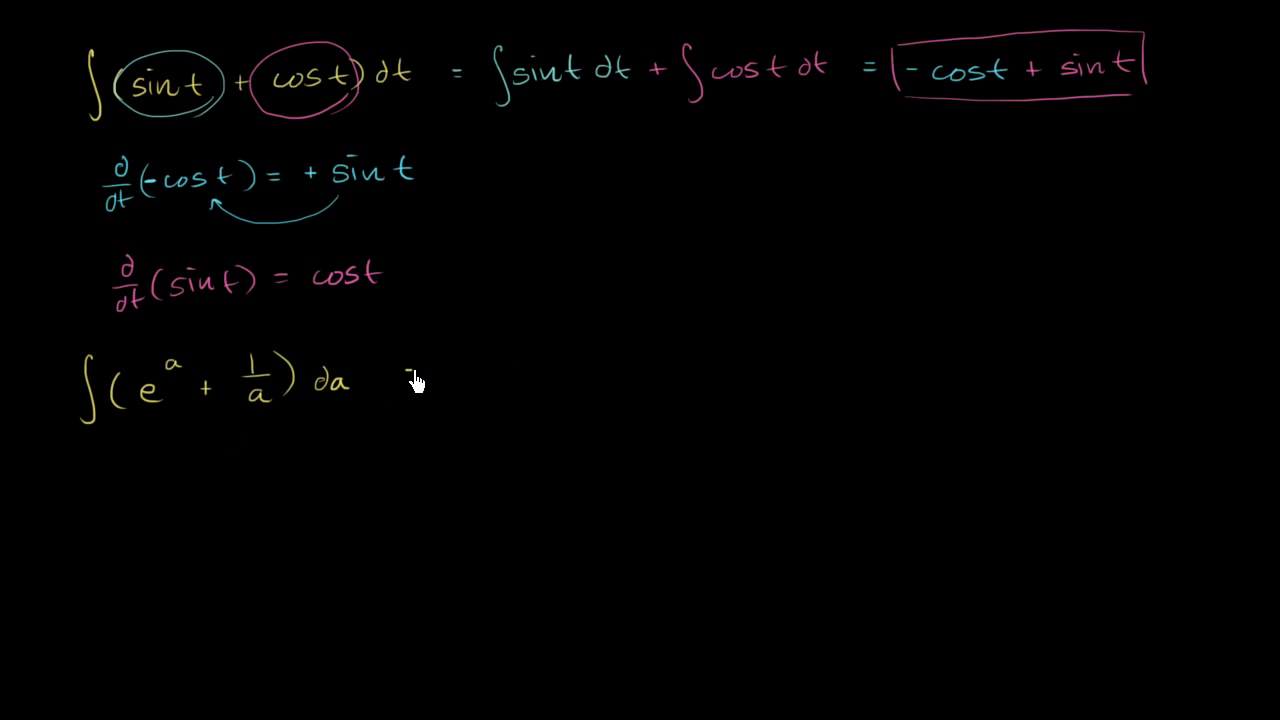 ∫(sin t + cos t) dt = ∫sin t dt + ∫cos t dt = - cos t + sin t
d/dt (-cos t) = + sin t
d/dt (sin t) = cos t
∫(e^a + 1/a) da